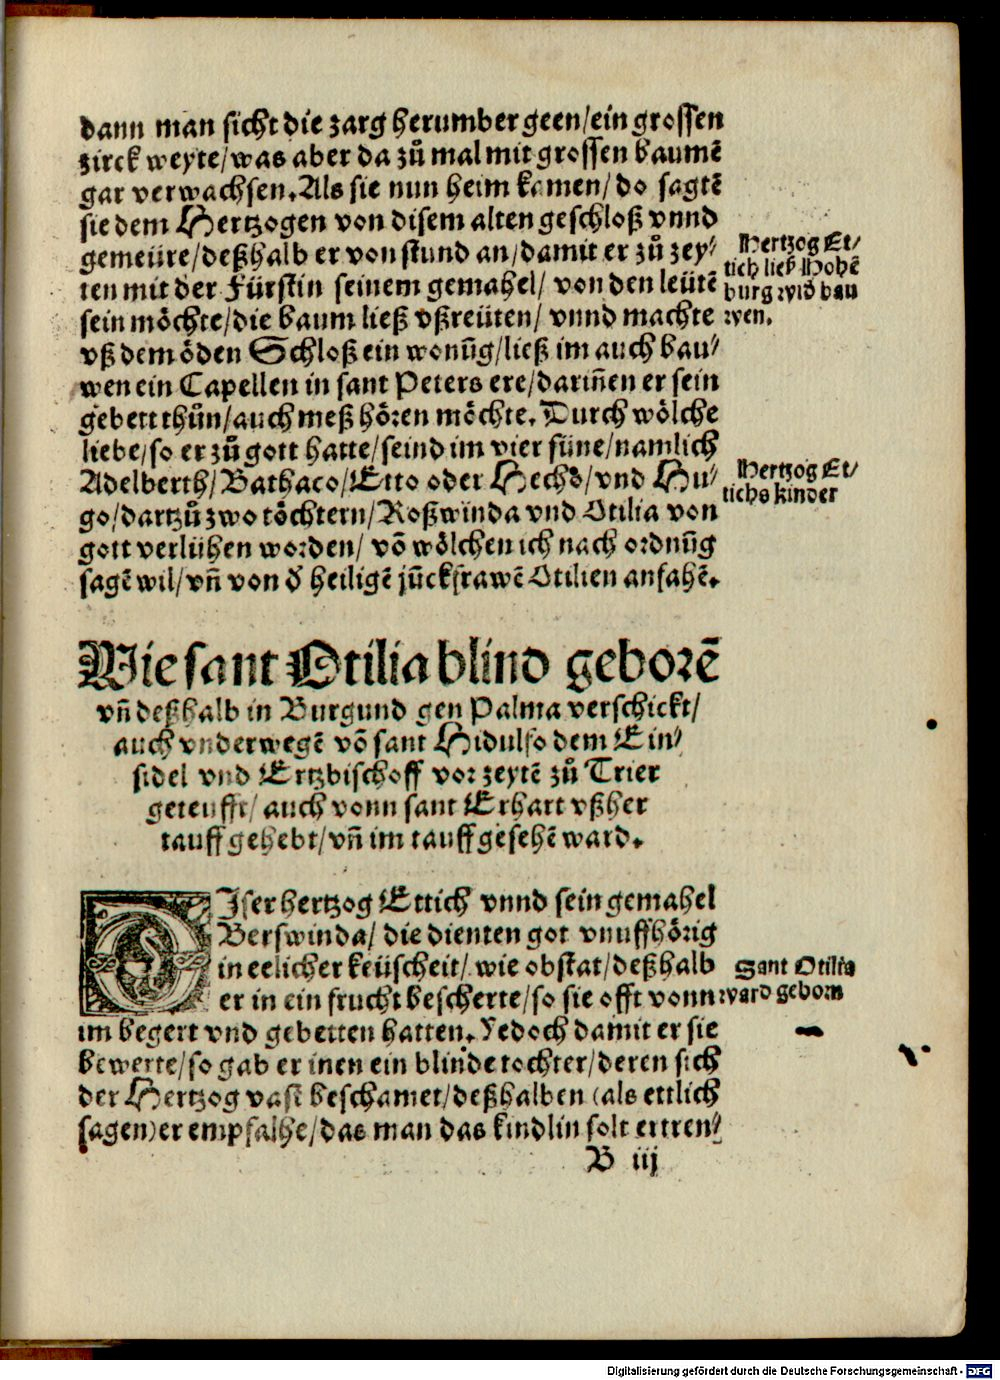 dann man sicht die zarg herumber geen/ein grossen
zirck weyte/was aber da zů mal mit grossen baumē
gar verwachsen. Als sie nun heim kamen/ do sagtē
sie dem Hertzogen von disem alten geschloß vnnd
gemeüre/deßhalb er von stund an/damit er zů zey/
ten mit der Fürstin seinem gemahel/ von den leütē
sein möchte/die baum ließ vßreüten/ vnnd machte
vß dem öden Schloß ein wonūg/ließ im auch bau/
wen ein Capellen in sant Peters ere/dariñen er sein
gebett thůn/auch meß hören möchte. Durch wölche
liebe/so er zů gott hatte/seind im vier süne/namlich
Adelberth/Bathaco/Etto oder Hechō/vnd Hu/
go/dartzů zwo töchtern/Roßwinda vnd Otilia von
gott verlühen worden/ vō wölchen ich nach ordnūg
sagē wil/vñ von ď heiligē jūckfrawē Otilien anfahē.
Hertzog Et/
tich ließ Hohē
burg wid bau
wen.
Hertzog Et/
tichs kinder
Wie sant Otilia blind geborē
vñ deßhalb in Burgund gen Palma verschickt/
auch vnderwegē vō sant Hidulfo dem Ein/
sidel vnd Ertzbischoff vor zeytē zů Trier
geteufft/ auch vonn sant Erhart vßher
tauff gehebt/vñ im tauff gesehē ward.
DIser hertzog Ettich vnnd sein gemahel
Berswinda/ die dienten got vnuffhörig
in eelicher keüscheit/ wie obstat/deßhalb
er in ein frucht bescherte/so sie offt vonn
im begert vnd gebetten hatten. Yedoch damit er sie
bewerte/so gab er inen ein blinde tochter/deren sich
der Hertzog vast beschamet/deßhalben (als ettlich
sagen) er empfalhe/das man das kindlin solt ertren/
Sant Otilia
ward geborn
B iij
Digitalisierung gefördert durch die Deutsche Forschungsgemeinschaft - DFG